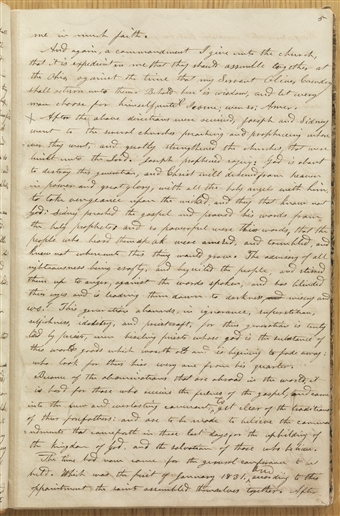 5
me in much faith.
And again, a commandment I give unto the church,
that it is expedient in me that they should assemble together at
the Ohio, against the time that my servant Oliver Cowdery
shall return unto them. Behold here is wisdom, and let every
man choose for himself until I come; even so; Amen.
X After the above directions were received, Joseph and Sidney
went to the several churches preaching and prophesying where
ever they went, and greatly strengthened the churches that were
built unto the Lord. Joseph prophesied saying; God is about
to destroy this generation, and Christ will descend from heaven
in power and great glory, with all the holy angels with him,
to take vengeance upon the wicked, and they that know not
God. Sidney preached the gospel and proved his words from
the holy prophets; and so powerful were their words, that the
people who heard them speak were amazed, and trembled, and
knew not whereunto this thing would grow. The adversary of all
righteousness being crafty, and beguiled the people, and stirred
them up to anger, against the words spoken, and has blinded
their eyes and is leading them down to darkness, misery and
woe. This generation abounds, in ignorance, superstition,
selfishness, idolatry, and priestcraft, for this generation is truly
led by priests, even hireling priests whose god is the substance of
this world's goods which waxeth old and is beginning to fade away:
who look for their hire every one from his quarter.
Because of the abominations that are abroad in the world, it
is hard for those who receive the fulness of the gospel, and come
into the new and everlasting covenant, to get clear of the traditions
of their forefathers: and are to be made to believe the comma-
ndments that came forth in these last days for the upbuilding of
the kingdom of God, and the salvation of those who believe.
The time had now come for the general conference to be
held. Which was the first of January 1831, and according to this
appointment the saints assembled themselves together. After